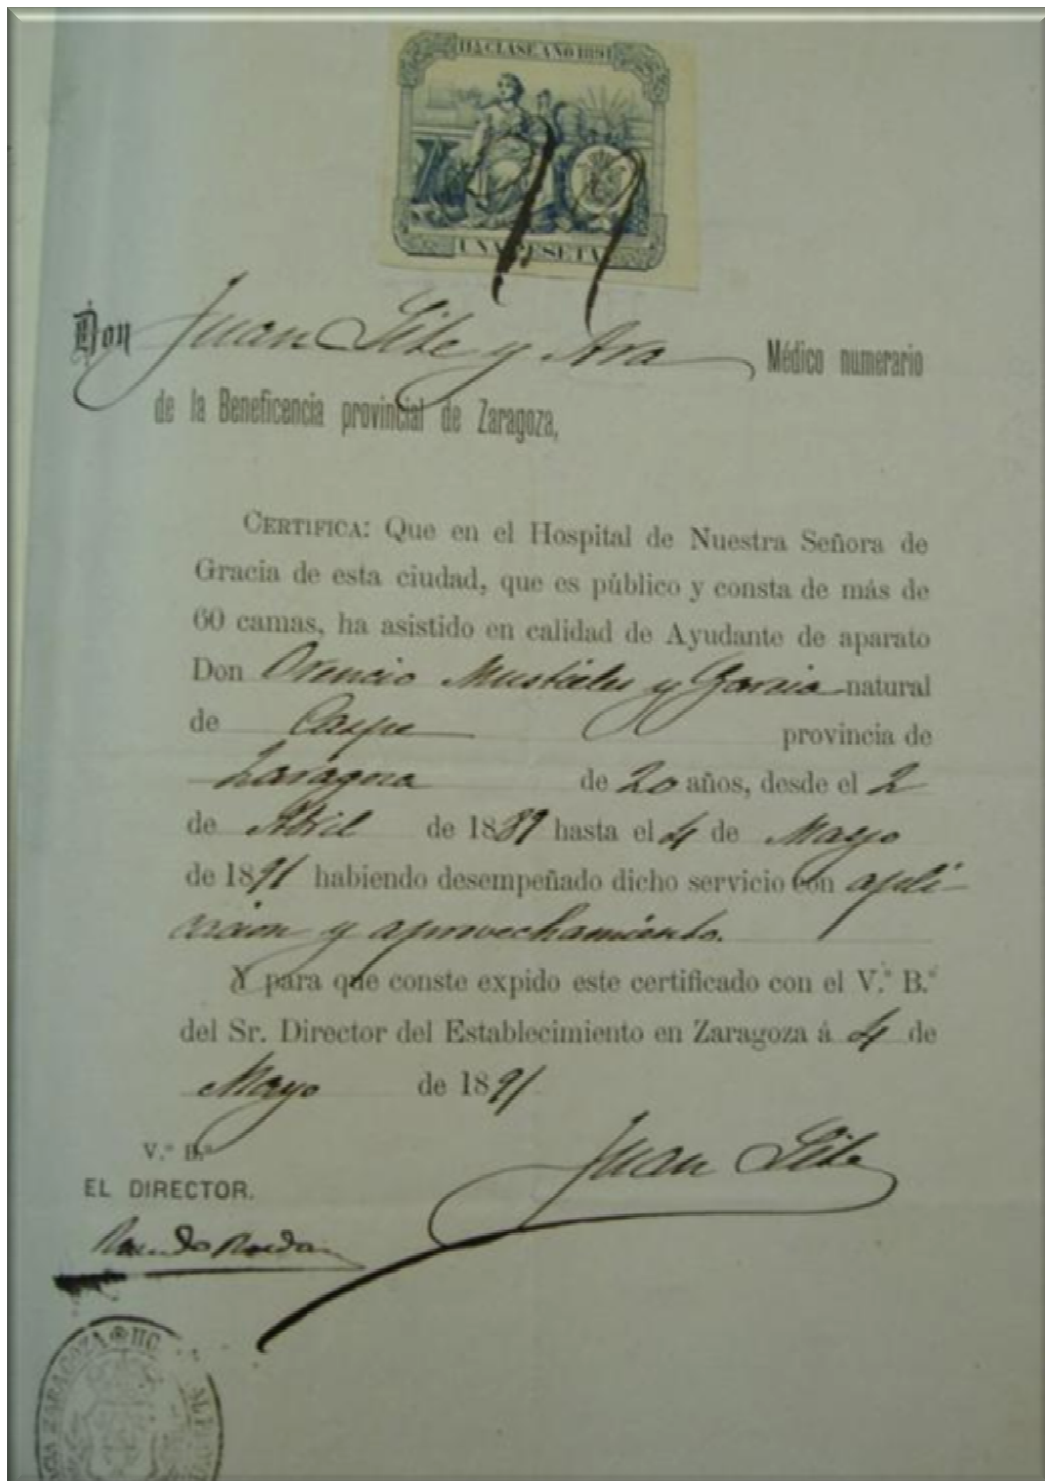 11.A CLASE AÑO 1891
UNA PESETA
Don Juan Gite y Ara Médico numerario
de la Beneficencia provincial de Zaragoza,
CERTIFICA: Que en el Hospital de Nuestra Señora de
Gracia de esta ciudad, que es público y consta de más de
60 camas, ha asistido en calidad de Ayudante de aparato
Don Orencio Mustieles y Garcia natural
de Caspe provincia de
Zaragoza de 20 años, desde el 2
de Abril de 1889 hasta el 4 de Mayo
de 1891 habiendo desempeñado dicho servicio con apli-
cación y aprovechamiento.
Y para que conste expido este certificado con el V.° B.°
del Sr. Director del Establecimiento en Zaragoza á 4 de
Mayo de 1891
V.° B.°
Juan Gite
EL DIRECTOR.
ZARAGOZA